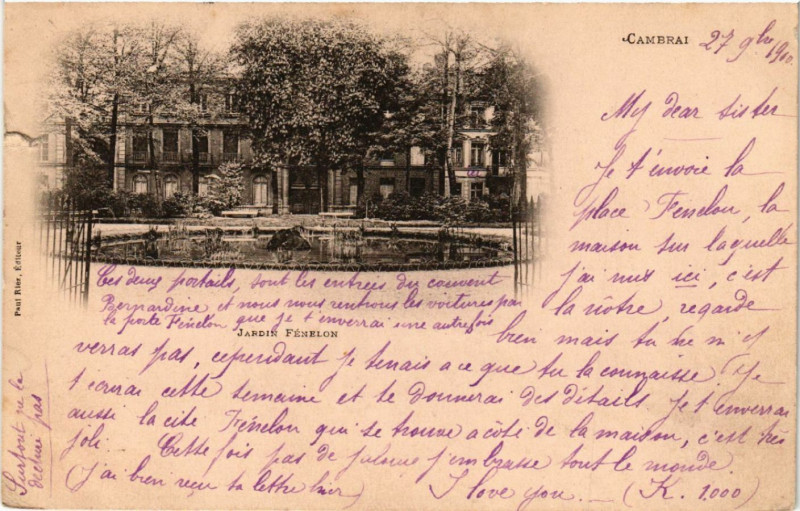 CAMBRAI 27 9bre 1900.
My dear sister
Je t'envoie la
place Fénelon, la
maison sur laquelle
j'ai mis ici, c'est
la nôtre, regarde
bien mais tu ne m'y
verras pas, cependant je tenais a ce que tu la connaisse. Je
t'écrirai cette semaine et te donnerai des détails. Je t'enverrai
aussi la cité Fénelon qui se trouve a côté de la maison, c'est très
joli. Cette fois pas de jalouse j'embrasse tout le monde.
(j'ai bien reçu ta lettre hier) I love you. _ (K. 1.000)
ici
Ces deux portails, sont les entrées du couvent
Bernardine et nous nous rentrons les voitures par
la porte Fénelon que je t'enverrai une autre fois
JARDIN FÉNELON
Surtout ne la
déchire pas
Paul Rier, Éditeur